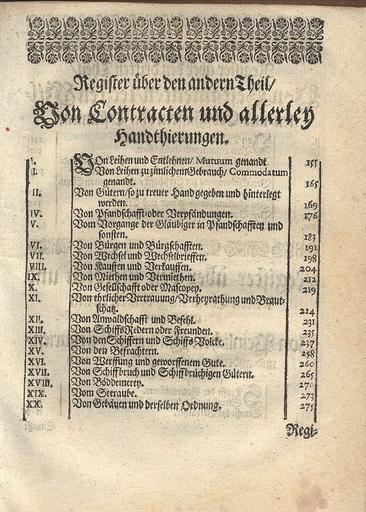 Register über den andern Theil/
Von Contracten und allerley
Handthierungen.
I. VOn Leihen und Entlehnen/ Mutuum genandt 155
I. Von Leihen zu zimlichem Gebrauch/ Commodatum
genandt. 165
II. Von Gütern/ so zu treuer Hand gegeben und hinterlegt
werden. 169
IV. Von Pfandschafft oder Verpfändungen. 176
V. Vom Vorgange der Gläubiger in Pfandschafften und
sonsten. 183
VI. Von Bürgen und Bürgschafften. 191
VII. Von Wechsel und Wechselbrieffen. 198
VIII. Von Kauffen und Verkauffen. 204
IX. Von Miethen und Vermiethen. 212
X. Von Gesellschafft oder Mascopey. 219
XI. Von ehrlicher Vertrauung/ Verheyrathung und Braut-
schatz. 214
XII. Von Anwaldschafft und Befehl. 231
XIII. Von Schiffs Redern oder Freunden. 235
XIV. Von den Schiffern und Schiffs Volcke. 237
XV. Von den Befrachtern. 258
XVI. Von Werffung und geworffenem Gute. 260
XVII. Von Schiffbruch und Schiffbrüchigen Gütern. 265
XVIII. Von Böddemerey. 270
XIX. Vom Seeraube. 273
XX. Von Gebäuen und derselben Ordnung. 275
Regi-